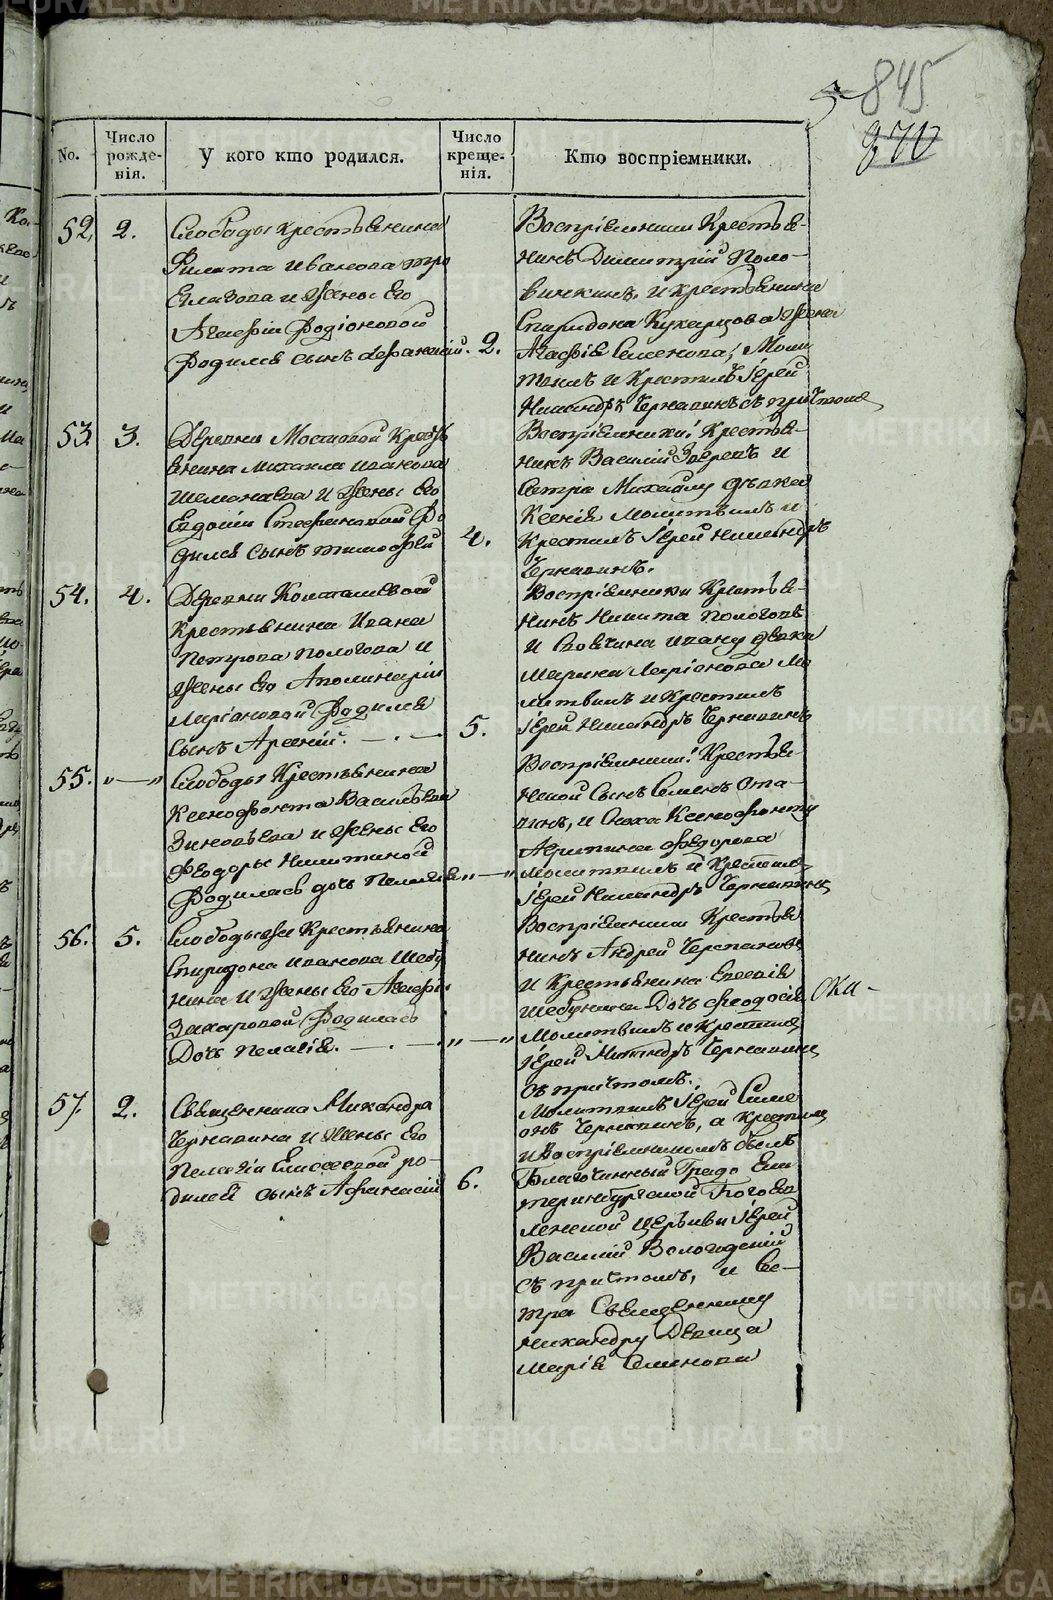 845
No.
Число рожде-нія.
У кого кто родился.
Число креще-нія.
Кто воспріемники.
52.
2.
Слободы крестьянина
Филата Иванова
и жены Его
Агафіи Родіоновой
Родился сынъ Афанасій.
2.
Воспріемники Крестья-
нинъ Димитрій Поло-
винкинъ, и крестьянина
Спиридона Кухарцова жена
Агафія Семенова, Моли-
твилъ и Крестилъ Іерей
Никандръ Чернавинъ съ притчомъ
53.
3.
Деревни Мостовой Кресть-
янина Михаила Иванова
и жены Его
Евдокіи Стефановой Ро-
дился сынъ Тимофей
4.
Воспріемники: Крестья-
нинъ Василій Зверевъ и
Сестра Михаилу девка
Ксенія Молитвилъ и
Крестилъ Іерей Никандръ
Чернавинъ.
54.
4.
Деревни
Крестьянина Ивана
Петрова Пологова и
жены Его Аполинаріи
Ларіоновой Родился
сынъ Арсеній. — . —
5.
Воспріемники Крестья-
нинъ Никита Пологовъ
и Своячина Ивану девка
Марина Ларіонова Мо-
литвилъ и Крестилъ
Іерей Никандръ Чернавинъ
55.
„—„
Слободы Крестьянина
Ксенофонта Васильева
Зиновьева и жены Его
Феодоры Никитиной
Родилась дочь Пелагія
„—„
Воспріемники: Крестья-
нской Сынъ Семенъ
и Сноха Ксенофонту
Агрипина Федорова
молитвилъ и Крестилъ
Іерей Никандръ Чернавинъ
56.
5.
Слободы Крестьянина
Спиридона Иванова Шебу-
нина и жены Его Агафіи
Захаровой Родилась
Дочь Пелагія. — . —
„—„
Воспріемники Крестья
нинъ Андрей Черепановъ
и Крестьянина Евсевія
Шебунина Дочь Феодосія
Молитвилъ и Крестилъ
Іерей Никандръ Чернавинъ
съ притчомъ.
57.
2.
Священника Никандра
Чернавина и жены Его
Пелагіи Елисеевой ро-
дился сынъ Афанасій
6.
Молитвилъ Іерей Симе
онъ Чернавинъ, а крестилъ
и Воспріемникомъ былъ
Благочинный Градо Ека
теринбургской Богояв
ленской церкви Іерей
Василій Вологодскій
съ притчомъ, и Сес-
тра Священнику
Никандру Девица
Марія Семенова